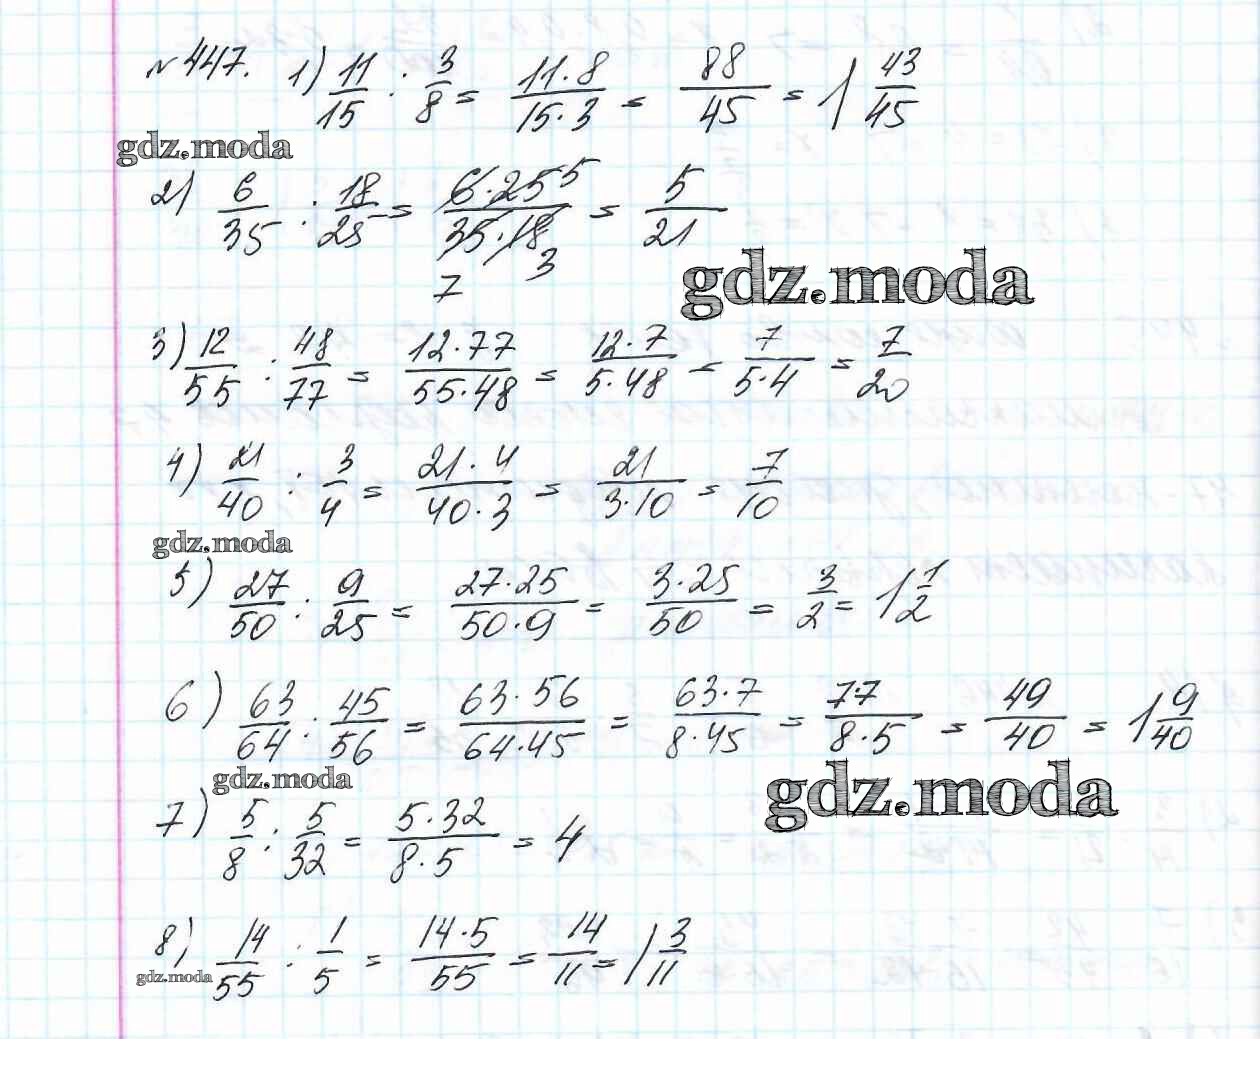 №447. 1) 11/15 : 3/8 = 11·8/15·3 = 88/45 = 1 43/45
gdz.moda
2) 6/35 : 18/25 = 6·25 5/35·18 7 3 = 5/21
gdz.moda
3) 12/55 : 48/77 = 12·77/55·48 = 12·7/5·48 = 7/5·4 = 7/20
4) 21/40 : 3/4 = 21·4/40·3 = 21/3·10 = 7/10
gdz.moda
5) 27/50 : 9/25 = 27·25/50·9 = 3·25/50 = 3/2 = 1 1/2
6) 63/64 : 45/56 = 63·56/64·45 = 63·7/8·45 = 7·7/8·5 = 49/40 = 1 9/40
gdz.moda
gdz.moda
7) 5/8 : 5/32 = 5·32/8·5 = 4
8) 14/55 : 1/5 = 14·5/55 = 14/11 = 1 3/11
gdz.moda